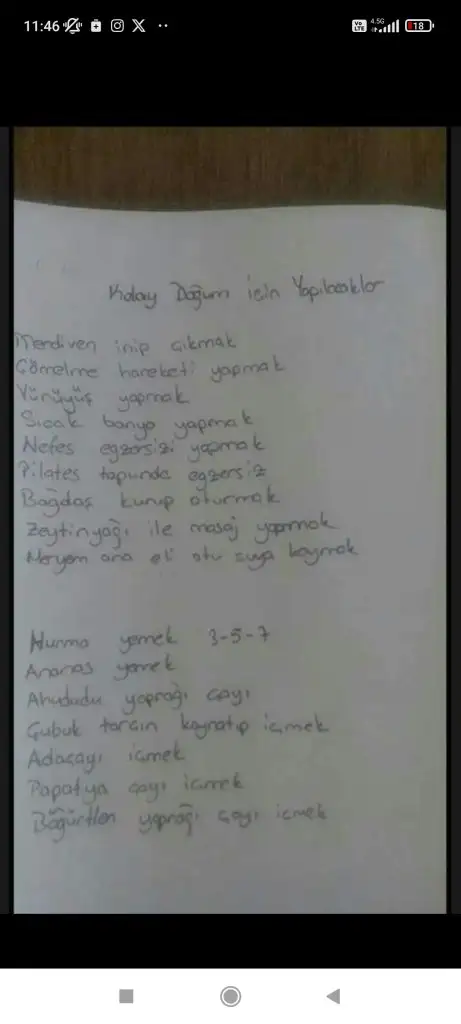 11:46
Vo LTE 4.5G 18
Kolay Doğum için Yapılacaklar
Merdiven inip çıkmak
Çömelme hareketi yapmak
Yürüyüş yapmak
Sıcak banyo yapmak
Nefes egzersizi yapmak
Pilates topunda egzersiz
Bağdaş kurup oturmak
Zeytinyağı ile masaj yapmak
Meryem ana eli otu suya koymak
Hurma yemek 3-5-7
Ananas yemek
Ahududu yaprağı çayı
Çubuk tarçın kaynatıp içmek
Adaçayı içmek
Papatya çayı içmek
Böğürtlen yaprağı çayı içmek